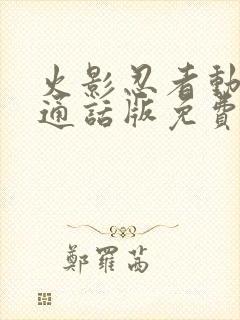 火影忍者動
通話版免費
鄭羅茜